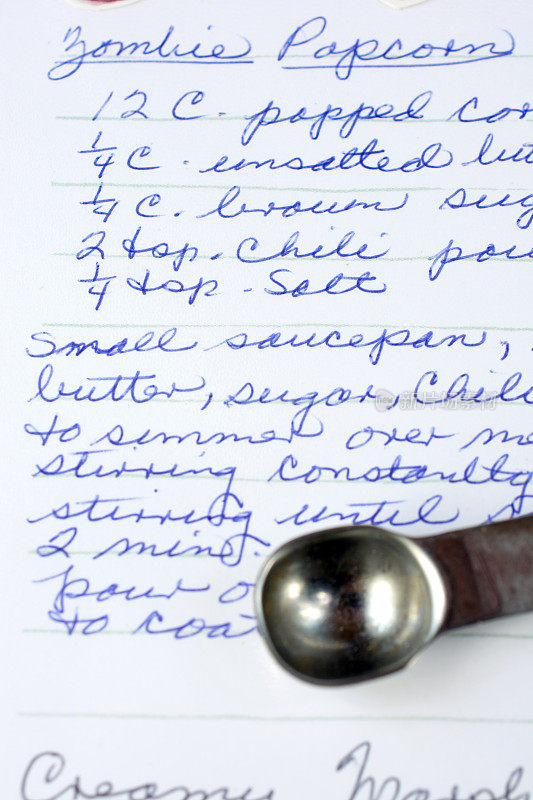 Zombie Popcorn
12 C. popped cor
1/4 C. unsalted but
1/4 C. brown sug
2 tsp. Chili pow
1/4 tsp. Salt
Small saucepan,
butter, sugar, Chili
to simmer over me
stirring constantly
stirring until
2 mins.
pour o
to coa
Creamy Marsh
新片场素材